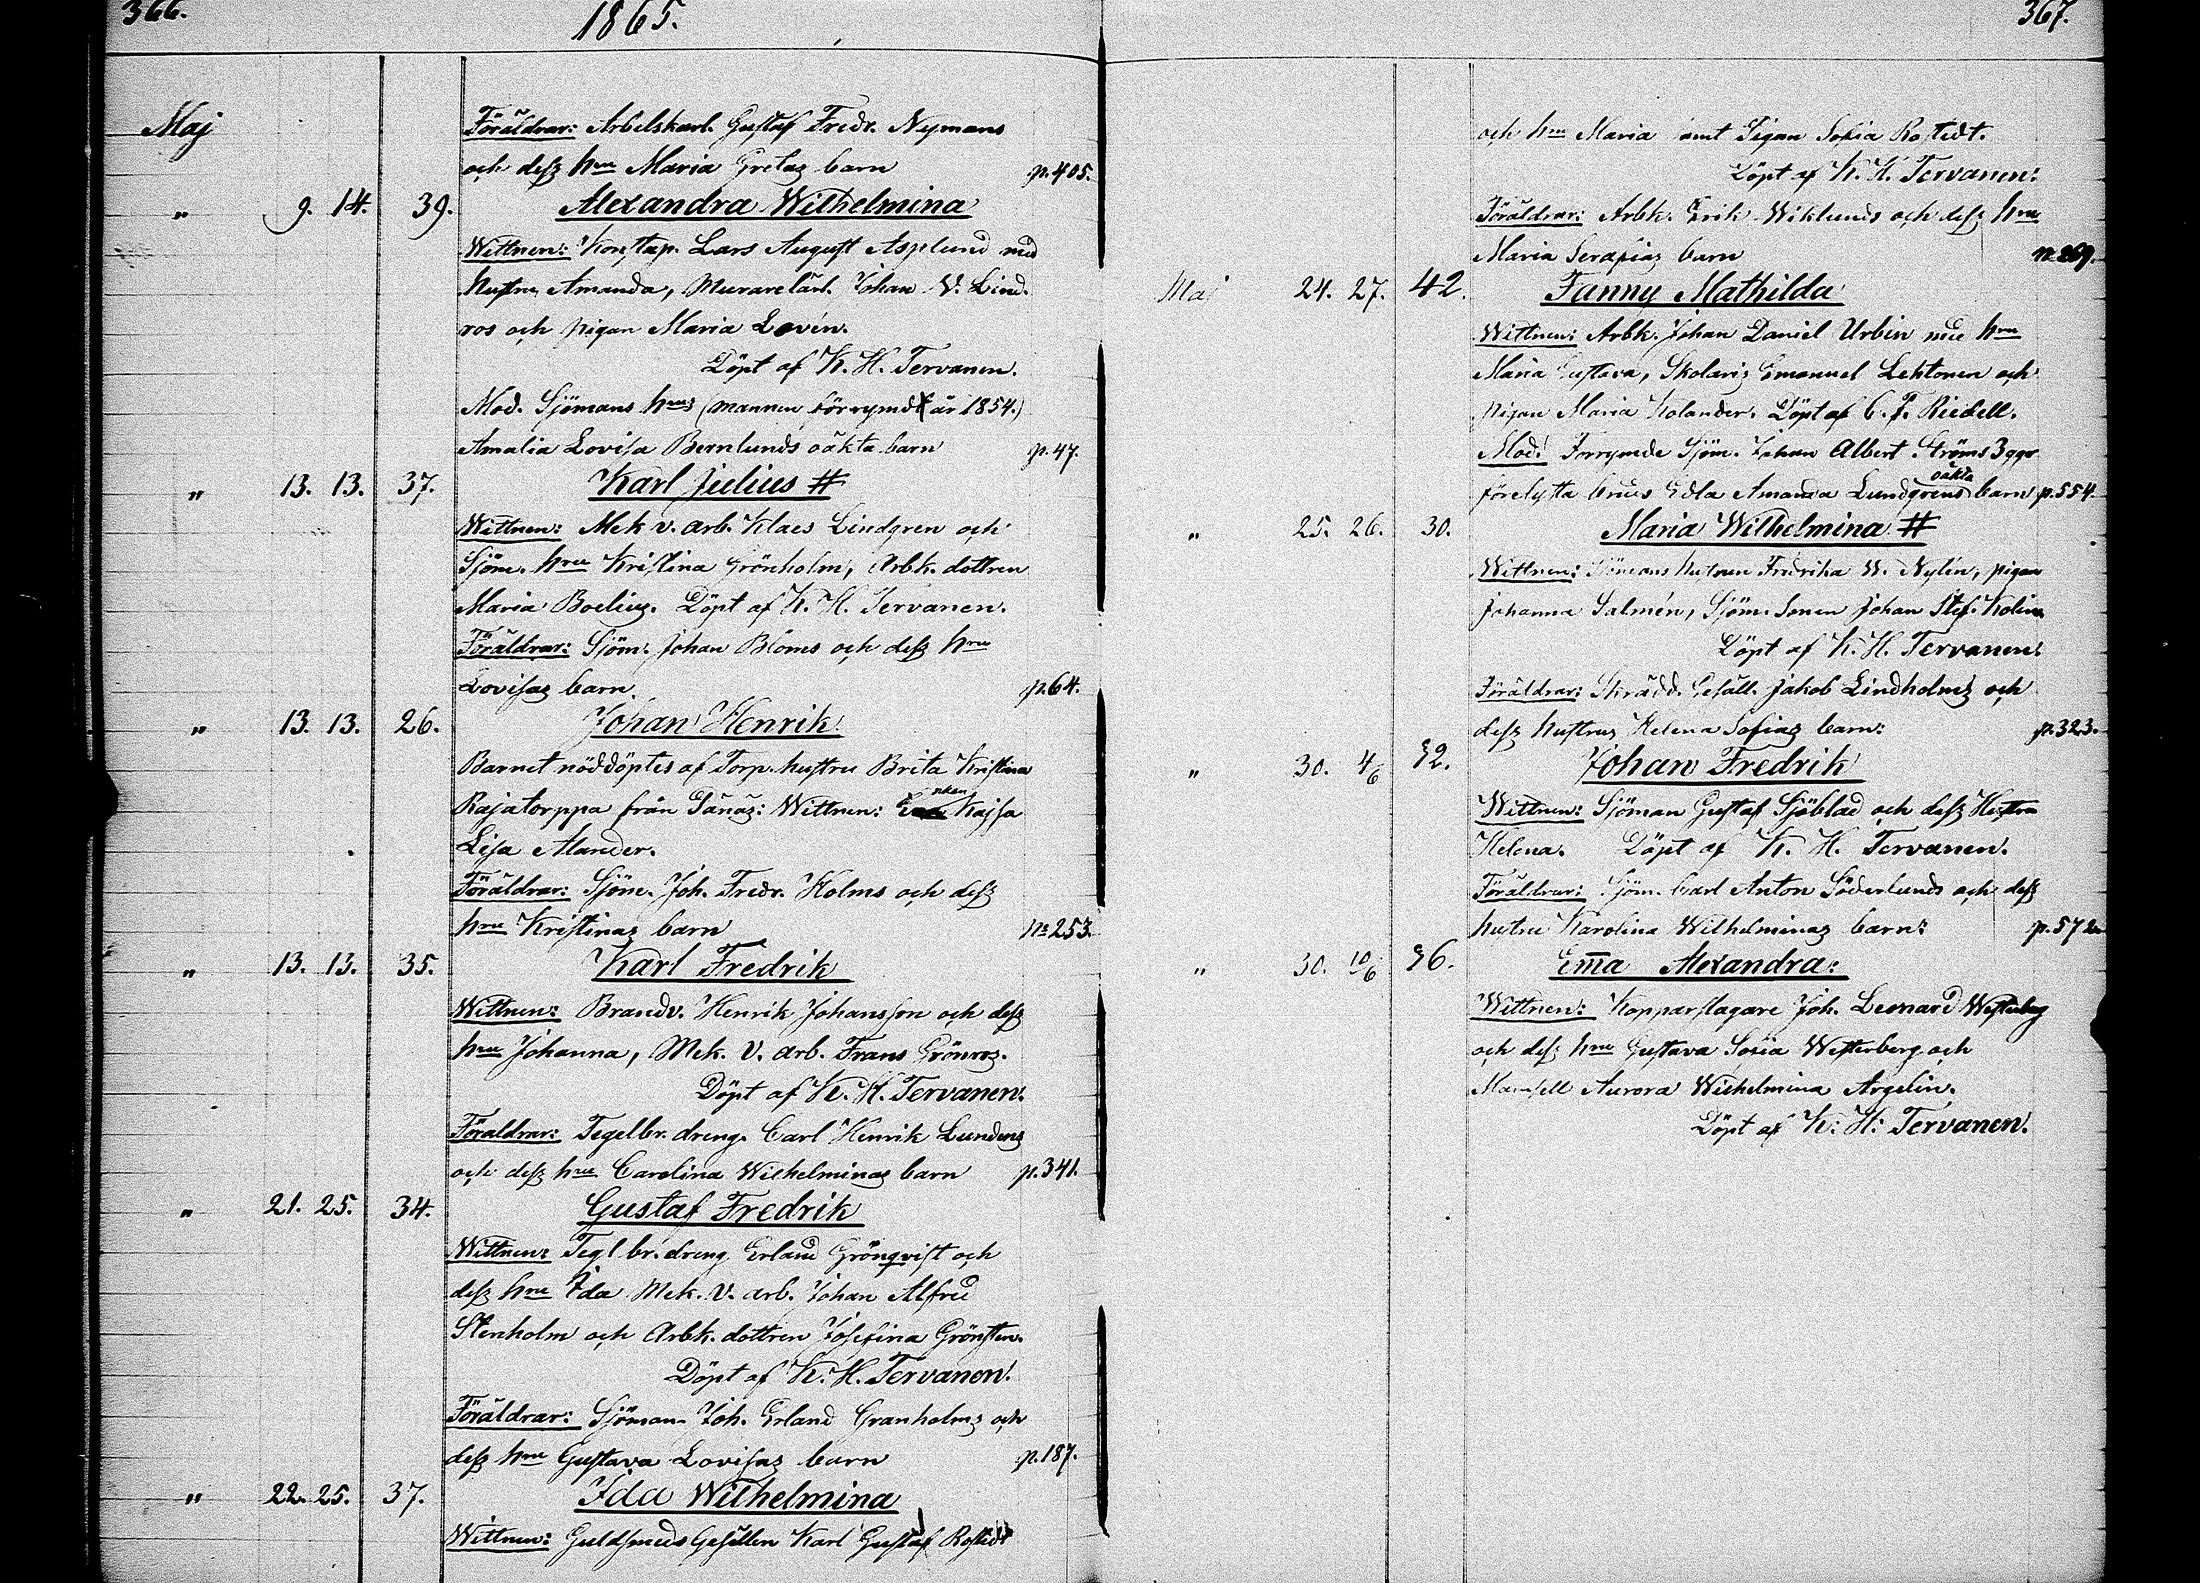 366.
1865.
Maj
Föräldrar: Arbetskarl. Gustaf Fredr. Nymans
och dess hru Maria Gretas barn p. 405.
" 9. 14. 39. Alexandra Wilhelmina
Wittnen: Konstap. Lars August Asplund med
hustru Amanda, Murarelärl. Johan V. Lind-
ros och pigan Maria Lovén.
Döpt af K. H. Tervanen.
Mod. Sjömans hrus (mannen förrymd är 1854.)
Amalia Lovisa Bernlunds oäkta barn p. 47.
" 13. 13. 37. Karl Julius #
Wittnen: Mek v. arb. Klaes Lindgren och
Sjöm. hru Kristina Grönholm, Arbk. dottren
Maria Boelius. Döpt af K. H. Tervanen.
Föräldrar: Sjöm. Johan Bloms och dess hru
Lovisas barn. p. 64.
" 13. 13. 26. Johan Henrik.
Barnet nöddöptes af Torp. hustru Brita Kristina
Rajatorppa från Sänäs: Wittnen: Enkan Kajsa
Lisa Alander.
Föräldrar: Sjöm. Joh. Fredr. Holms och dess
hru Kristinas barn No 253.
" 13. 13. 35. Karl Fredrik
Wittnen: Brandv. Henrik Johansson och dess
hru Johanna, Mek. V. arb. Frans Grönros.
Döpt af K. H. Tervanen.
Föräldrar: Tegelbr. dreng. Carl Henrik Lundens
och dess hru Carolina Wilhelminas barn p. 341.
" 21. 25. 34. Gustaf Fredrik
Wittnen: Tegl br. dreng Erland Grönqvist och
dess hru Ida Mek. V. arb. Johan Alfred
Stenholm och Arbk. dottren Josefina Grönsten.
Döpt af K. H. Tervanen.
Föräldrar: Sjöman Joh. Erland Granholms och
dess hru Gustava Lovisas barn p. 187.
" 22. 25. 37. Ida Wilhelmina
Wittnen: Guldsmeds Gesällen Karl Gustaf Rostedt
367.
och hru Maria samt Pigan Sofia Rostedt.
Döpt af K. H. Tervanen:
Föräldrar: Arbk. Erik Wiklunds och dess hru
Maria Serafias barn p. 269.
Maj 24. 27. 42. Fanny Mathilda
Wittnen: Arbk. Johan Daniel Urbin med hru
Maria Gustava, Skolaris Emanuel Lehtonen och
pigan Maria Kolander. Döpt af C. F. Riedell.
Mod: Förrymde Sjöm. Johan Albert Ströms 3ggr
förelysta brus Edla Amanda Lundgrens oäkta barn p. 554.
" 25. 26. 30. Maria Wilhelmina #
Wittnen: Sjömans hustrun Fredrika W. Nylin, pigan
Johanna Salmén, Sjöm. Sonen Johan Stef. Kolin.
Döpt af K. H. Tervanen.
Föräldrar: Skrädd. Gesäll. Jakob Lindholms och
dess hustrus Helena Sofias barn: p. 323.
" 30. 4/6 32. Johan Fredrik
Wittnen: Sjöman Gustaf Sjöblad och dess Hustru
Helena. Döpt af K. H. Tervanen.
Föräldrar: Sjöm. Carl Anton Söderlunds och dess
hustru Karolina Wilhelminas barn: p. 572.
" 30. 10/6 36. Em̄a Alexandra:
Wittnen: Kopparslagare Joh. Leonard Westerberg
och dess hru Gustava Sofia Westerberg och
Mamsell Aurora Wilhelmina Argelin.
Döpt af K: H: Tervanen.